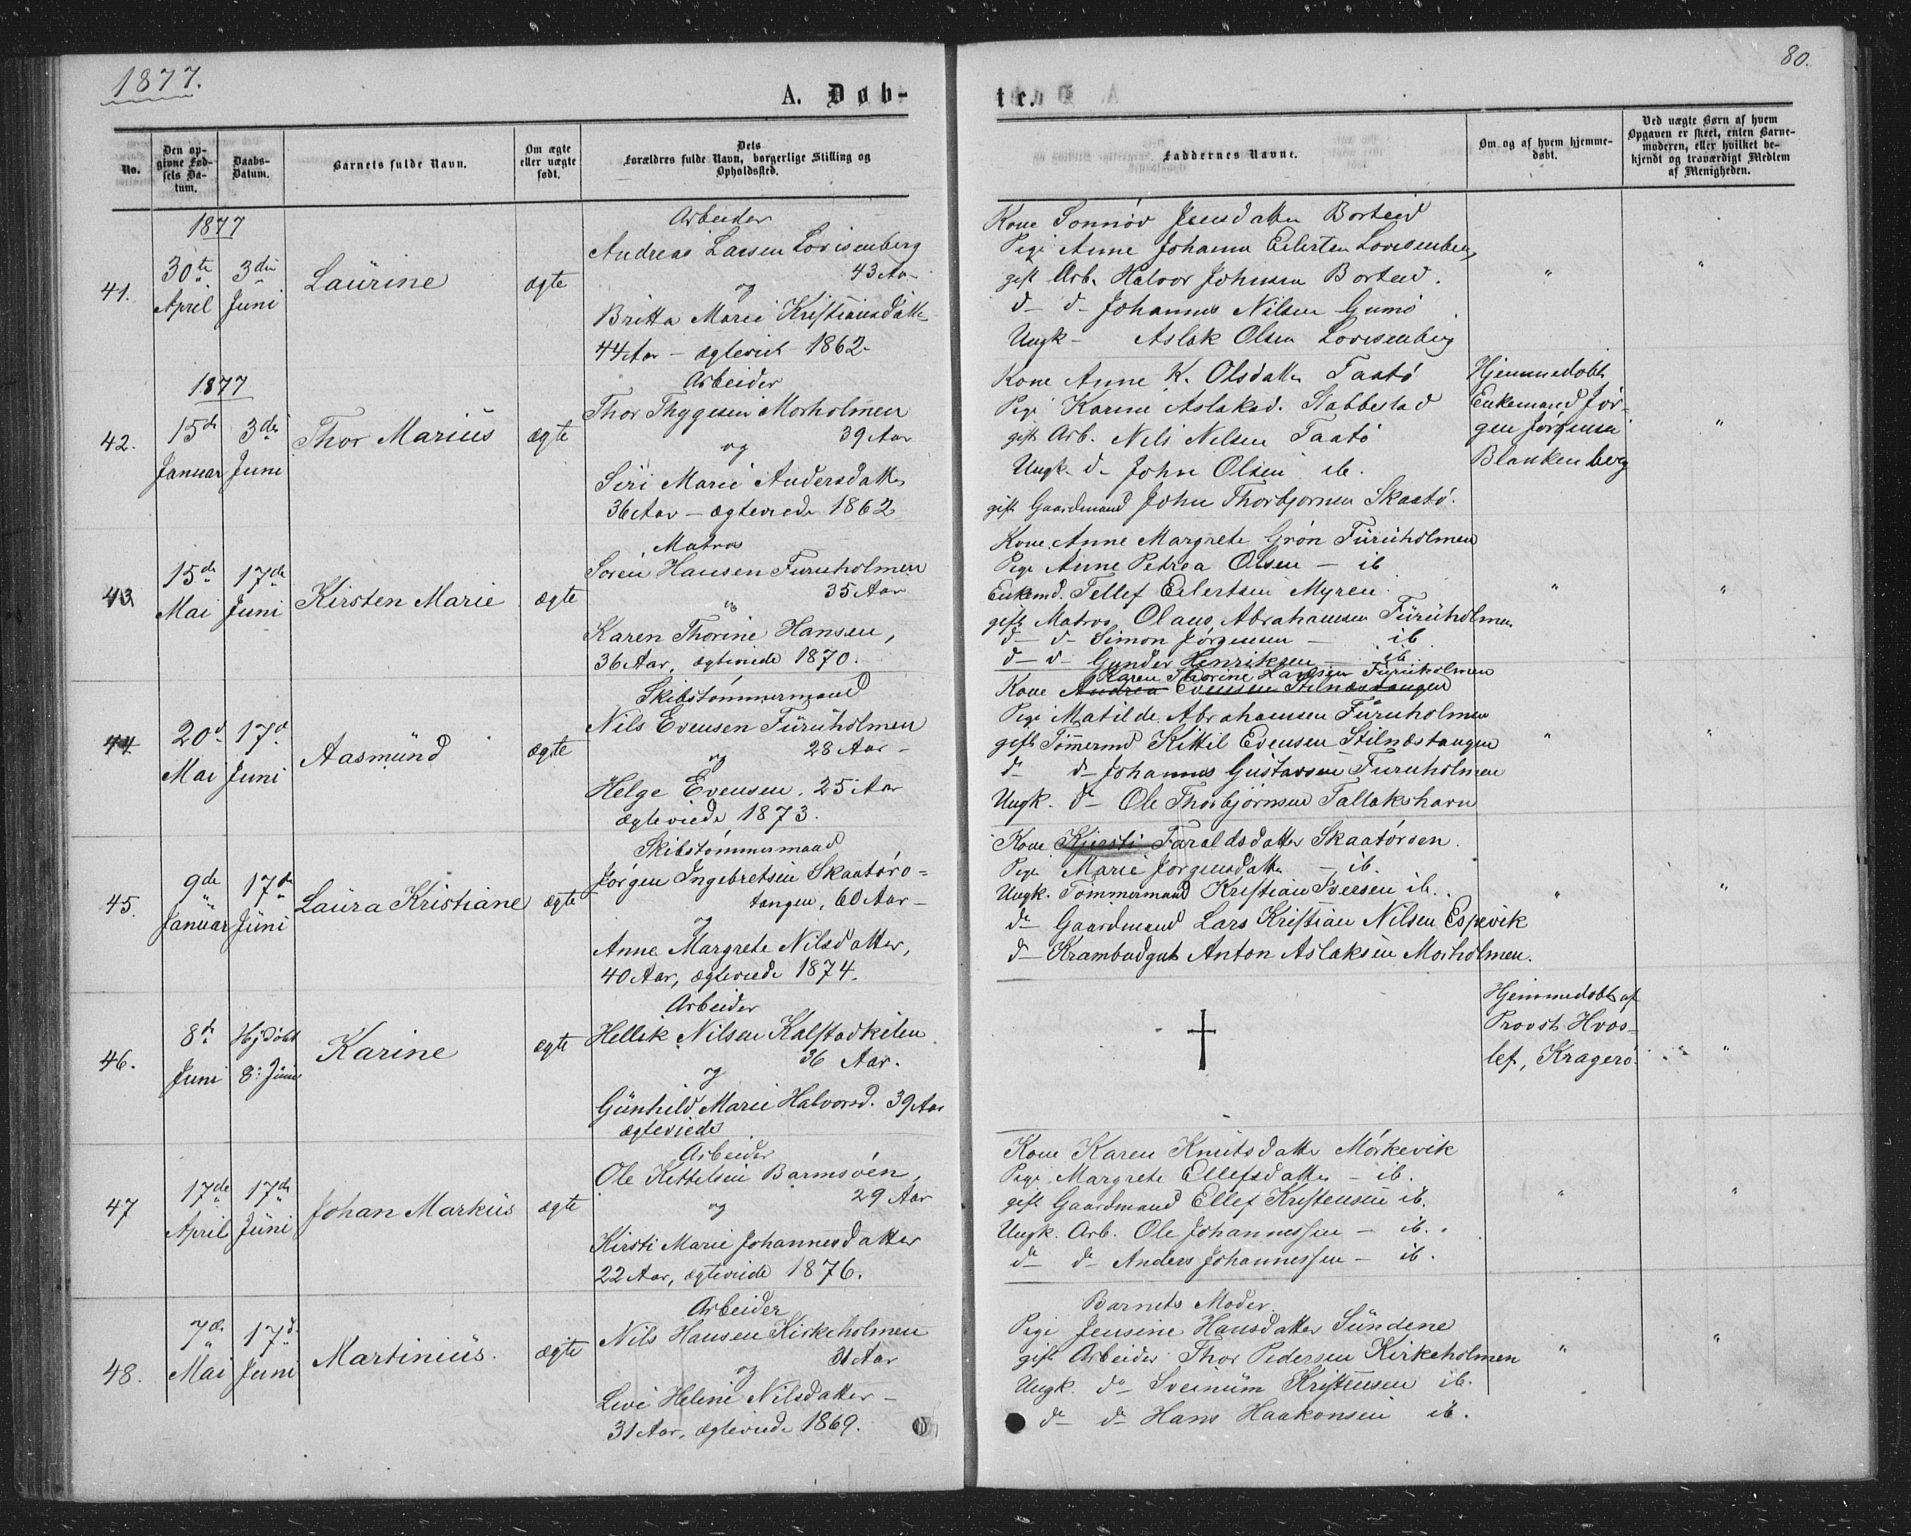 1877.
80.
A. Døb-
te.
No.
Den op-
givne Fød-
sels Da-
tum.
Daabs-
Datum.
Barnets fulde Navn.
Om ægte
eller uægte
født.
Dets
Forældres fulde Navn, borgerlige Stilling og
Opholdssted.
Faddernes Navne.
Om og af hvem hjemme-
døbt.
Ved uægte Børn af hvem
Opgaven er skeet, enten Barne-
moderen, eller hvilket be-
kjendt og troværdigt Medlem
af Menigheden.
1877
41.
30te
April
3die
Juni
Laurine
ægte
Arbeider
Andreas Larsen Lovisenberg
43 Aar
og
Britta Marie Kristiansdatter
44 Aar - ægteviet - 1862.
Kone Sonnöv Jensdatter Borteid
Pige Anne Johanne Eilertsen Lovisenberg
gift Arb. Halvor Johnsen Borteid.
d - d - Johannes Nilsen Gumö
Ungk - Aslak Olsen Lovisenberg
"
"
1877
42.
15de
Januar
3die
Juni
Thor Marius
ægte
Arbeider
Thor Thygesen Morholmen
39 Aar
og
Siri Marie Andersdatter
36 Aar - ægteviede 1862
Kone Anne K. Olsdatter Taatö
Pige Karine Aslaksd. Stabbestad
gift Arb. Nils Nilsen Taatö
Ungk. d - John Olsen ib.
gift Gaardmand John Thorbjornsen Skaatö.
Hjemmedöbt
Enkemand Jör-
gen Jörgensen
Blankenberg
"
43
15de
Mai
17de
Juni
Kirsten Marie
ægte
Matros
Soren Hansen Furuholmen
35 Aar
og
Karen Thorine Hansen,
36 Aar, ægteviede 1870.
Kone Anne Margrete Grön Furuholmen
Pige Anne Petrea Olsen - ib
Enkemd. Tellef Eilertsen Myren.
gift Matros Olaus Abrahamsen Furuholmen
d - d - Simon Jörgensen - ib
d - d - Gunder Henriksen - ib.
"
"
44
20de
Mai
17de
Juni
Aasmund
ægte
Skibstömmermand
Nils Evensen Furuholmen
28 Aar -
og
Helge Evensen. 25 Aar
ægteviede 1873.
Karen Thorine Hansen Furuholmen
Kone Andrea Evensen Stilnæstangen
Pige Matilde Abrahamsen Furuholmen
gift Tömmermd Kittil Evensen Stilnæstangen
d - d - Johannes Gustavsen Furuholmen
Ungk. d - Ole Thorbjörnsen Tallakshavn
"
"
45.
9de
Januar
17de
Juni
Laura Kristiane
ægte
Skibstömmermand
Jörgen Ingebretsen Skaatörö-
tangen, 60 Aar -
og
Anne Margrete Nilsdatter,
40 Aar, ægteviede 1874.
Kone Kjersti Faraldsdatter Skaatöröen.
Pige Marie Jörgensdatter - ib.
Ungk. Tömmermand Kristian Iversen ib.
d - Gaardmand Lars Kristian Nilsen Espevik
d - Krambodgut Anton Aslaksen Morholmen.
"
"
46.
8de
Juni
Hjdöbt
8: Juni
Karine
ægte
Arbeider
Hellik Nilsen Kalstadkilen
36 Aar.
og
Gunhild Marie Halvorsd. 39 Aar
ægteviede
†
Hjemmedöbt af
Provst Hvos-
lef, Kragerö.
"
"
47
17de
April
17de
Juni
Johan Markus
ægte
Arbeider
Ole Kettelsen Barmsöen,
29 Aar
og
Kirsti Marie Johannesdatter
22 Aar, ægteviede 1876.
Kone Karen Knutsdatter Mörkevik
Pige Margrete Ellefsdatter - ib.
gift Gaardmand Ellef Kristensen ib.
Ungk. Arb. Ole Johannessen - ib.
d - d - Anders Johannessen - ib.
"
"
48.
7de
Mai
17de
Juni
Martinius.
ægte
Arbeider
Nils Hansen Kirkeholmen
31 Aar
og
Live Helene Nilsdatter -
31 Aar, ægteviede 1869.
Barnets Moder
Pige Jensine Hansdatter Sundene
gift Arbeider Thor Pedersen Kirkeholmen
Ungk. d - Sveinum Kristensen ib.
d - d - Hans Haakonsen ib.
"
"